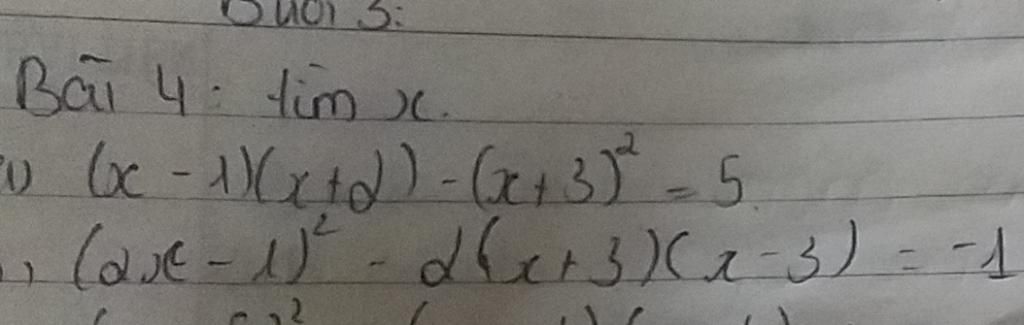 Buổi 3:
Bài 4: tìm x.
1) (x - 1)(x+2) - (x+3)² = 5
(2x - 1)² - 2(x+3)(x-3) = -1